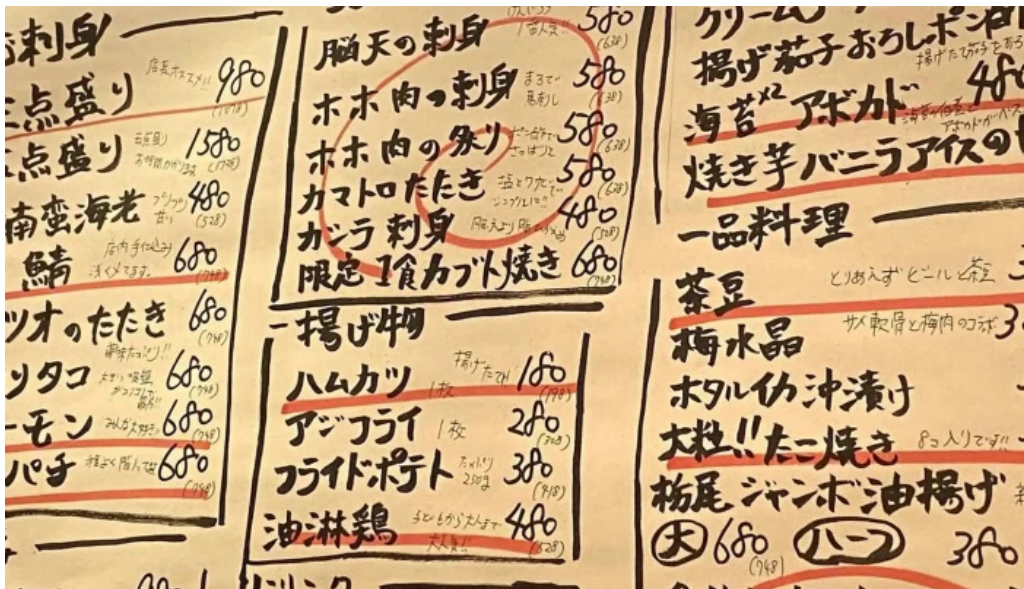 刺身
点盛り 店長オススメ!! 980
点盛り 1580
南蛮海老 プリプリ 甘い 480 (528)
鯖 店内手仕込み 浅〆めてます。 680 (748)
ツオのたたき 680 (748)
タコ 680 (748)
ーモン みんな大好き 680 (748)
パチ 680 (748)
脳天の刺身 580 (638)
ホホ肉の刺身 まるで馬刺し 580 (638)
ホホ肉の炙り ポン酢でさっぱりと 580 (638)
カマトロたたき 塩とワサビで 580 (638)
カシラ刺身 480 (528)
限定1食カブト焼き 680 (748)
揚げ物
ハムカツ 1枚 揚げたて!! 180 (198)
アジフライ 1枚 280 (308)
フライドポテト たっぷり 250g 380 (418)
油淋鶏 子どもから大人まで 大人気!! 480 (528)
クリーム
揚げ茄子おろしポン
海苔×2 アボカド 480
焼き芋バニラアイスの
一品料理
茶豆 とりあえずビールと茶豆
梅水晶 サメ軟骨と梅肉のコラボ
ホタルイカ沖漬け
大粒!!たこ焼き 8コ入りです!!
栃尾ジャンボ油揚げ
大 680 (748) ハーフ 380
ドリンク